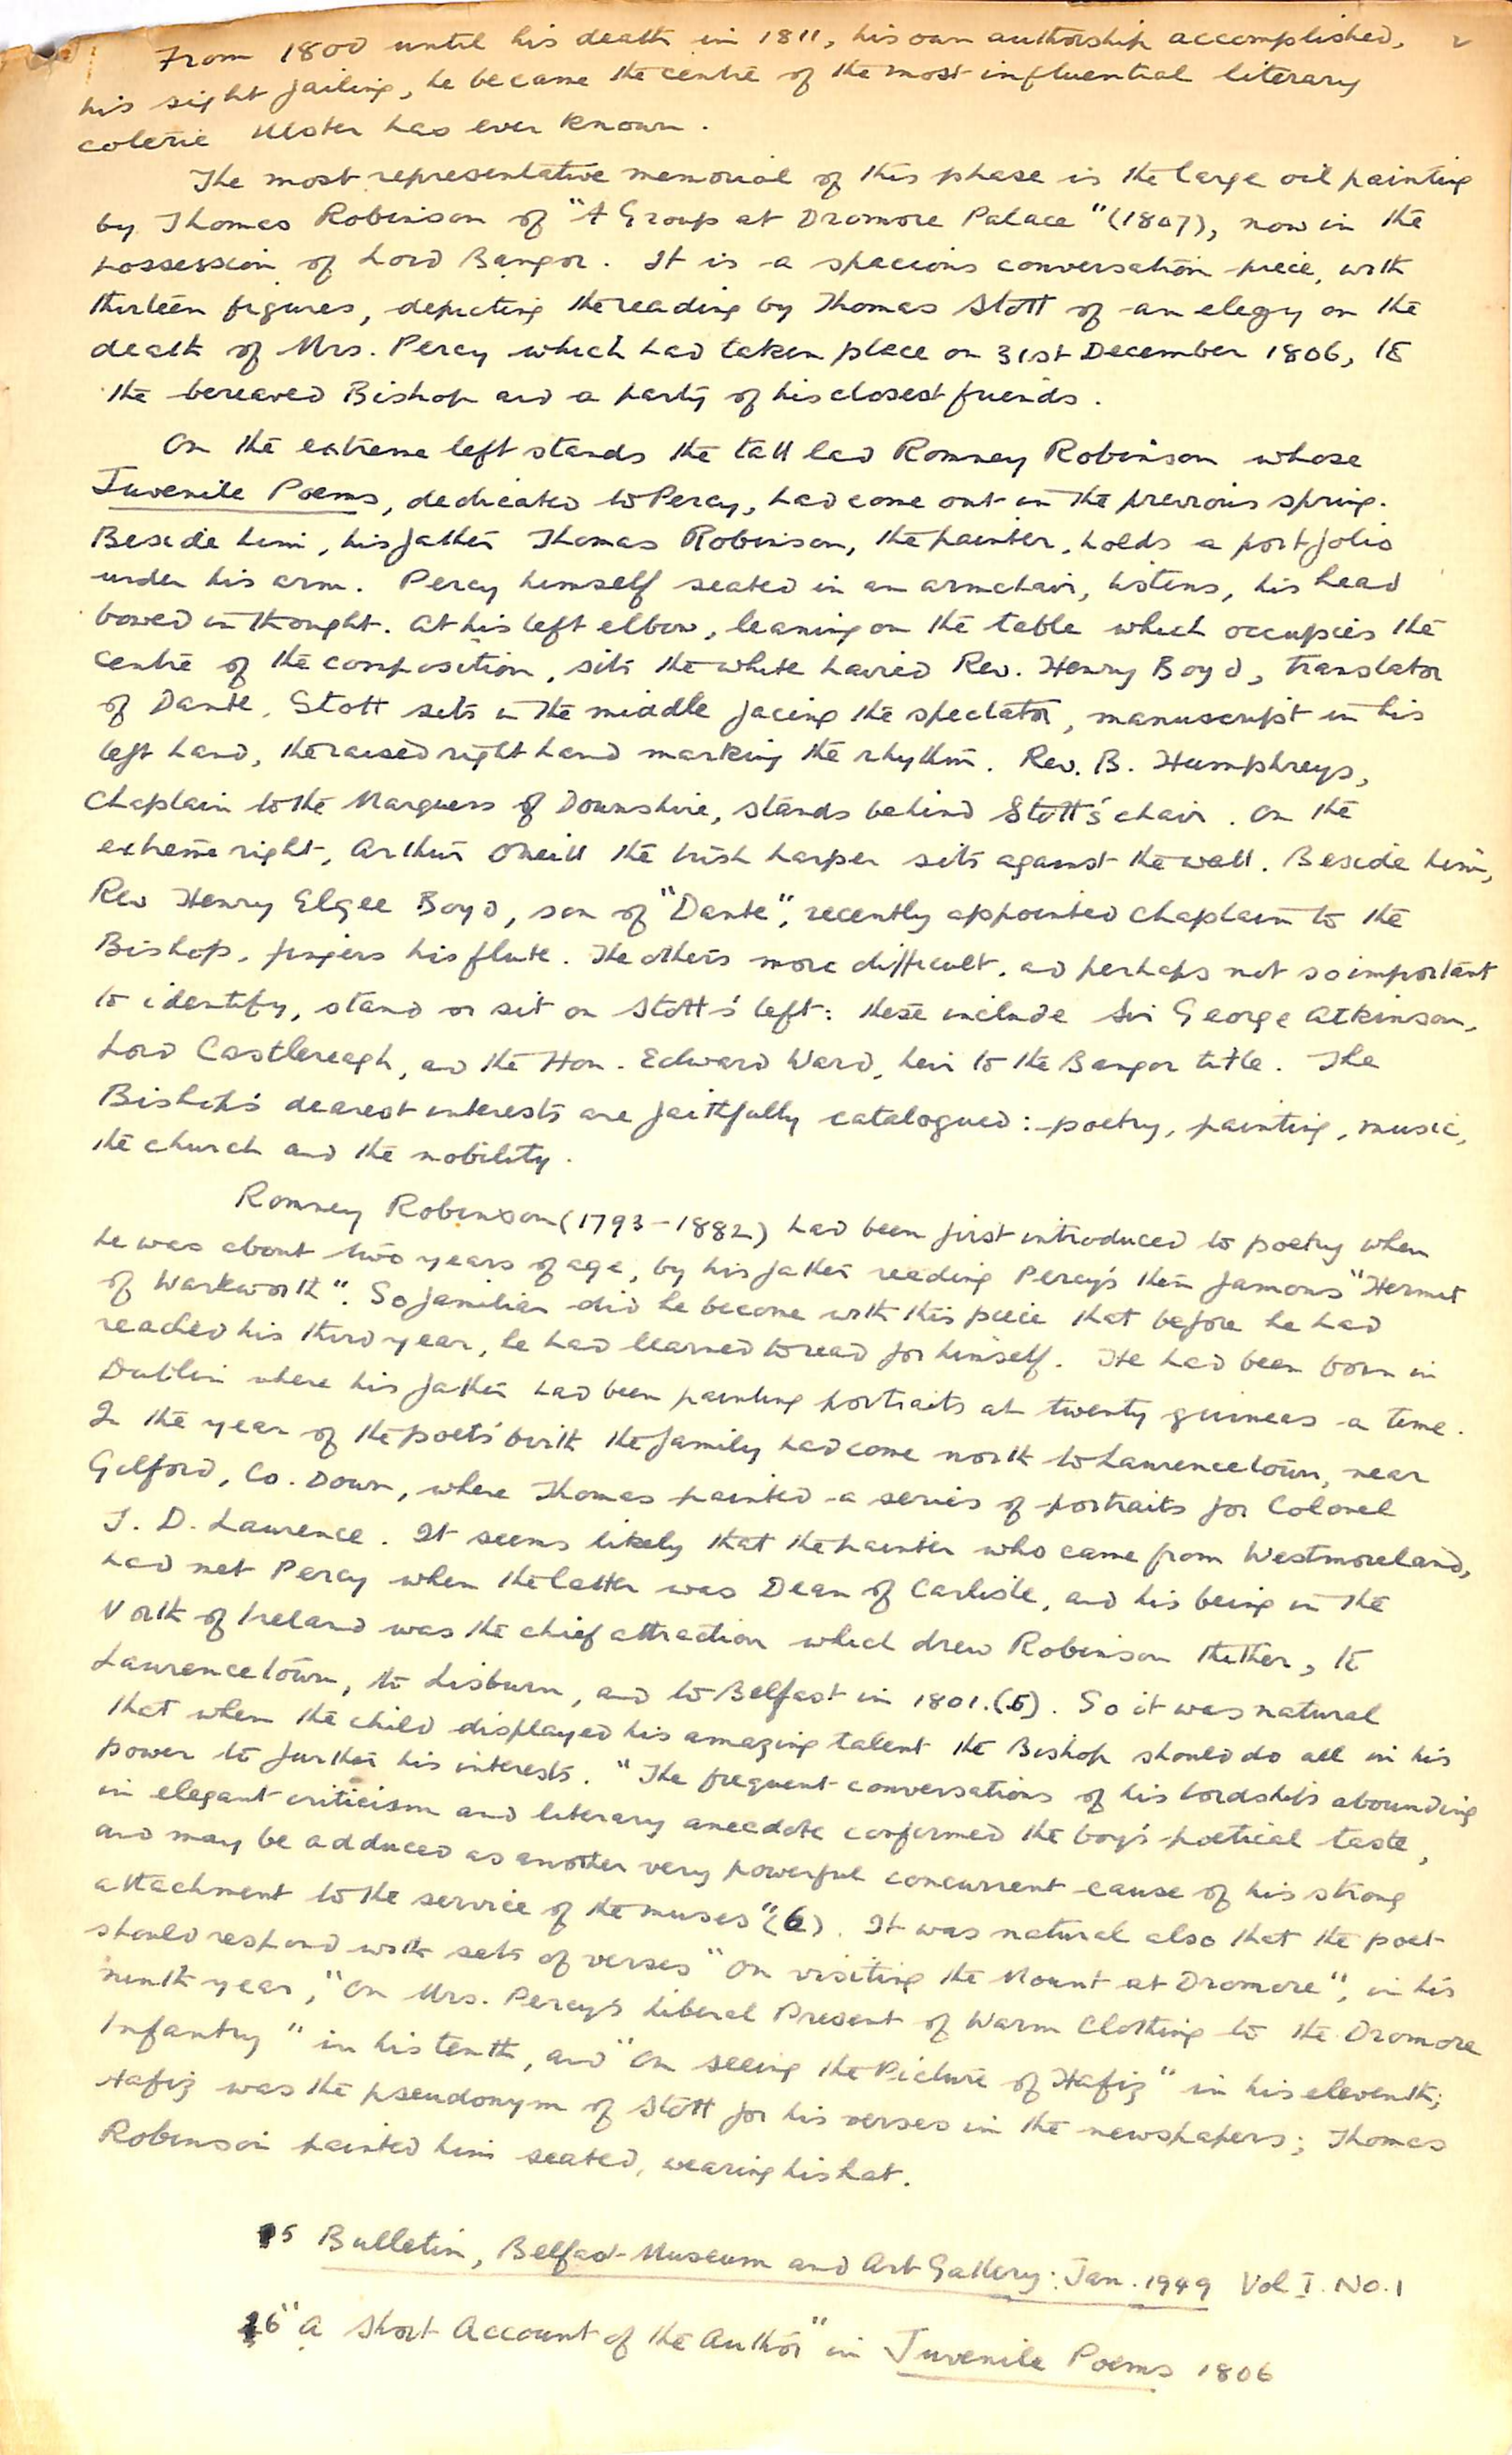 2
From 1800 until his death in 1811, his own authorship accomplished,
his sight failing, he became the centre of the most influential literary
coterie Ulster has ever known.
The most representative memorial of this phase is the large oil painting
by Thomas Robinson of "A Group at Dromore Palace" (1807), now in the
possession of Lord Bangor. It is a spacious conversation piece, with
thirteen figures, depicting the reading by Thomas Stott of an elegy on the
death of Mrs. Percy which had taken place on 31st December 1806, to
the bereaved Bishop and a party of his closest friends.
On the extreme left stands the tall lad Romney Robinson whose
Juvenile Poems, dedicated to Percy, had come out in the previous spring.
Beside him, his father Thomas Robinson, the painter, holds a portfolio
under his arm. Percy himself seated in an armchair, listens, his head
bowed in thought. At his left elbow, leaning on the table which occupies the
centre of the composition, sits the white haired Rev. Henry Boyd, translator
of Dante. Stott sits in the middle facing the spectator, manuscript in his
left hand, the raised right hand marking the rhythm. Rev. B. Humphreys,
Chaplain to the Marquess of Downshire, stands behind Stott's chair. On the
extreme right, Arthur Oneill the Irish harper sits against the wall. Beside him,
Rev Henry Elgee Boyd, son of "Dante", recently appointed chaplain to the
Bishop, fingers his flute. The others more difficult, and perhaps not so important
to identify, stand or sit on Stott's left: these include Sir George Atkinson,
Lord Castlereagh, and the Hon. Edward Ward, heir to the Bangor title. The
Bishop's dearest interests are faithfully catalogued: poetry, painting, music,
the church and the nobility.
Romney Robinson (1793-1882) had been first introduced to poetry when
he was about two years of age, by his father reading Percy's then famous "Hermit
of Warkworth". So familiar did he become with this piece that before he had
reached his third year, he had learned to read for himself. He had been born in
Dublin where his father had been painting portraits at twenty guineas a time.
In the year of the poet's birth the family had come north to Laurencetown, near
Gilford, Co. Down, where Thomas painted a series of portraits for Colonel
J. D. Laurence. It seems likely that the painter who came from Westmoreland,
had met Percy when the latter was Dean of Carlisle, and his being in the
North of Ireland was the chief attraction which drew Robinson thither, to
Laurencetown, to Lisburn, and to Belfast in 1801.(5). So it was natural
that when the child displayed his amazing talent the Bishop should do all in his
power to further his interests. "The frequent conversations of his lordship's abounding
in elegant criticism and literary anecdote confirmed the boy's poetical taste,
and may be adduced as another very powerful concurrent cause of his strong
attachment to the service of the muses" (6). It was natural also that the poet
should respond with sets of verses "On visiting the Mount at Dromore", in his
ninth year, "On Mrs. Percy's liberal Present of Warm Clothing to the Dromore
Infantry" in his tenth, and "On seeing the Picture of Hafiz" in his eleventh;
Hafiz was the pseudonym of Stott for his verses in the newspapers; Thomas
Robinson painted him seated, wearing his hat.
5 Bulletin, Belfast Museum and Art Gallery: Jan. 1949 Vol I. No. 1
6 "A Short Account of the Author" in Juvenile Poems 1806